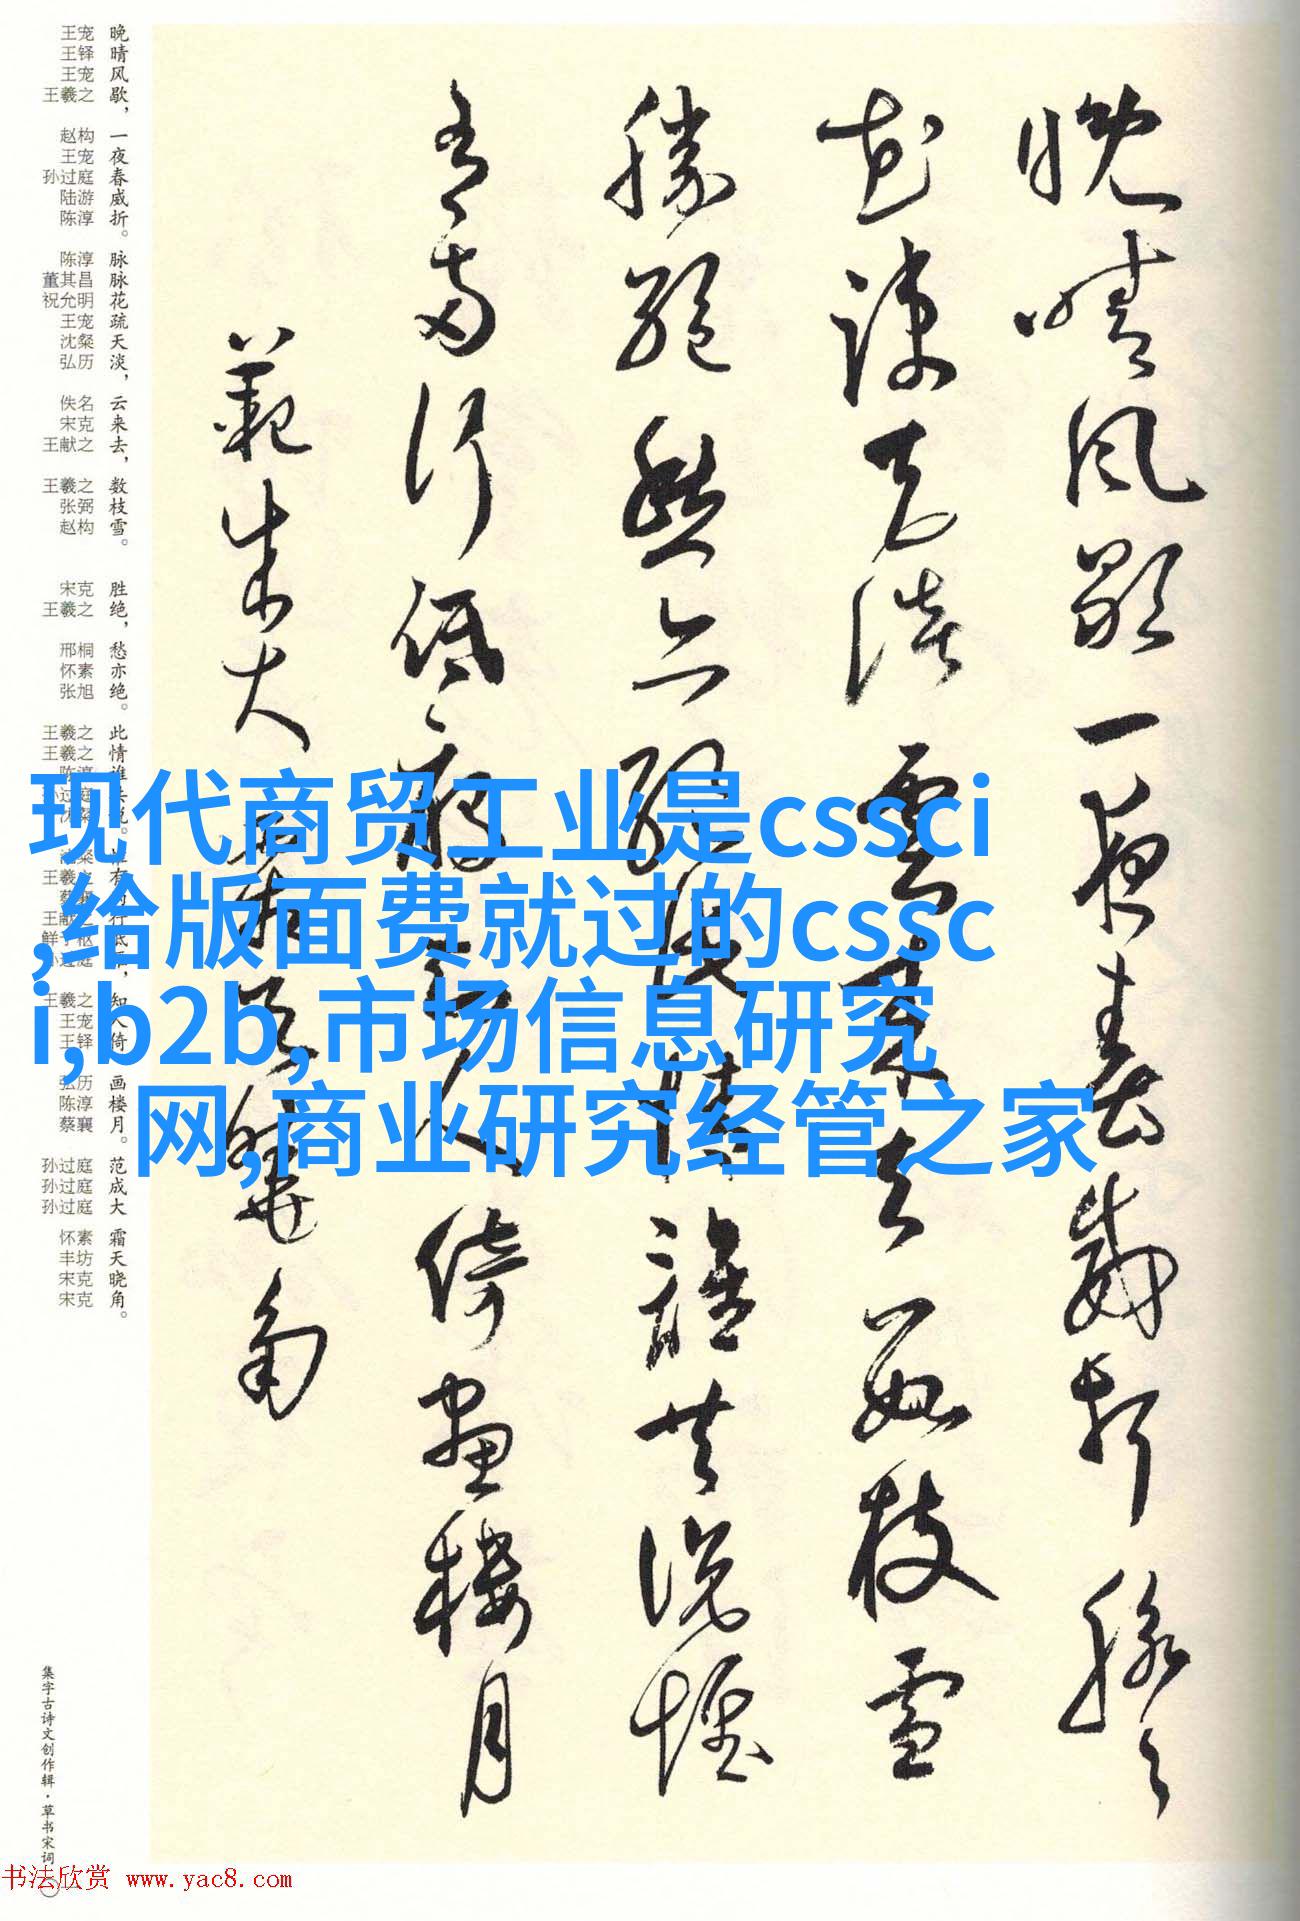 晚晴风歇一夜春威折脉脉
花疏天淡云来去数枝雪
胜绝愁亦绝此情谁共说惟
有两行低雁知人倚画楼月
范成大霜天晓角
王宠 晚
王铎 晴
王宠 风
王羲之 歇，
赵构 一
王宠 夜
孙过庭 春
陆游 威
陈淳 折。
陈淳 脉
董其昌 脉
祝允明 花
王宠 疏
沈粲 天
弘历 淡，
佚名 云
宋克 来
王献之 去，
王羲之 数
张弼 枝
赵构 雪。
宋克 胜
王羲之 绝，
邢桐 愁
怀素 亦
张旭 绝。
王羲之 此
王羲之 情
王羲之 知
王宠 人
王铎 倚
弘历 画
陈淳 楼
蔡襄 月。
孙过庭 范
孙过庭 成
孙过庭 大
怀素 霜
丰坊 天
宋克 晓
宋克 角。
现代商贸工业是cssci
,给版面费就过的cssc
i,b2b,市场信息研究
网,商业研究经管之家
集字古诗文创作辑·草书宋词
书法欣赏 www.yac8.com